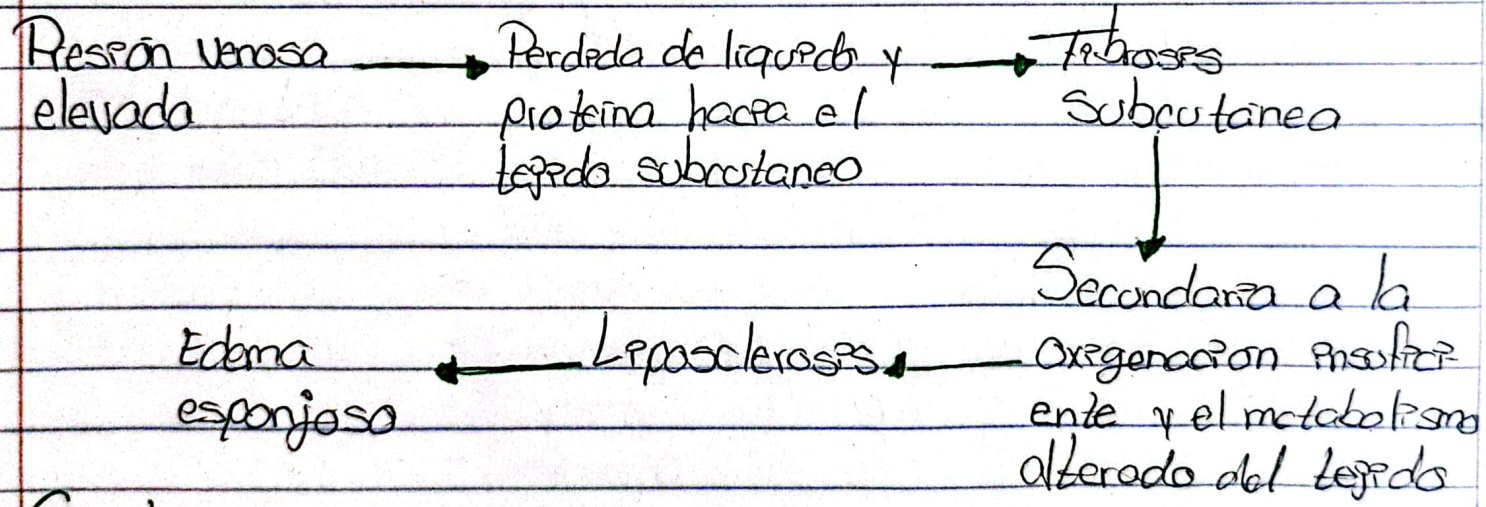 Presión venosa
elevada
Perdida de liquido y
proteina hacia el
tejido subcutaneo
Fibrosis
Subcutánea
Secundaria a la
oxigenación insufici-
ente y el metabolismo
alterado del tejido
Liposclerosis
Edema
esponjoso